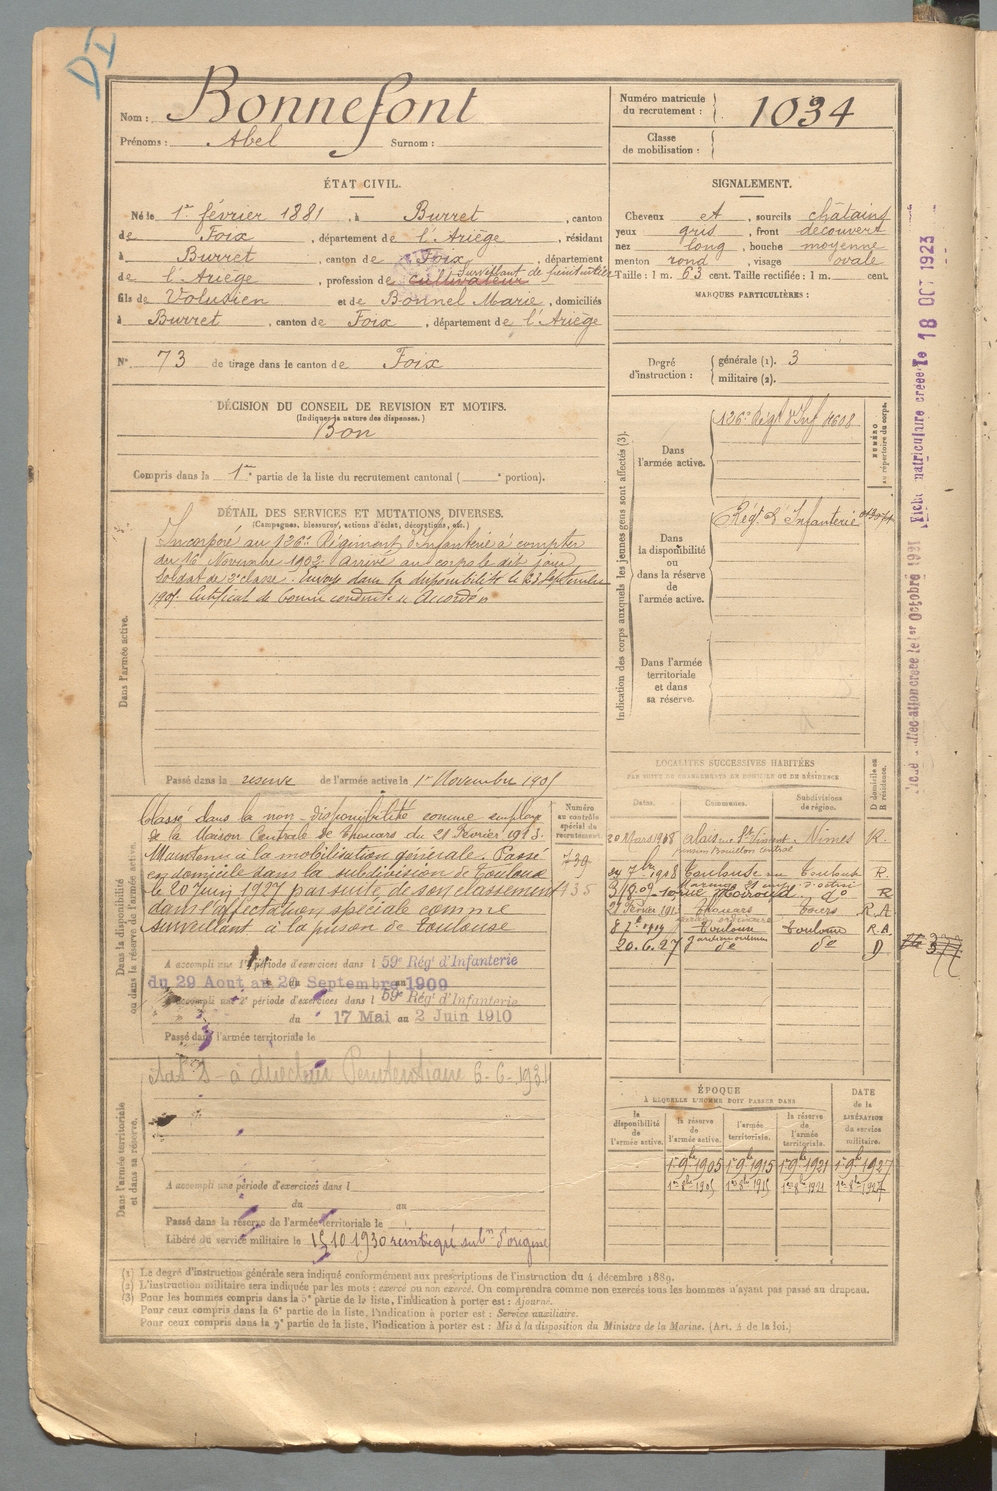 DI
Nom : Bonnefont
Prénoms : Abel Surnom :
Numéro matricule du recrutement : 1034
Classe de mobilisation :
ÉTAT CIVIL.
Né le 1er février 1881, à Burret, canton
de Foix, département de l'Ariège, résidant
à Burret, canton de Foix, département
de l'Ariège, profession de cultivateur Surveillant de pénitentier
fils de Volusien et de Bonnel Marie, domiciliés
à Burret, canton de Foix, département de l'Ariège
N° 73 de tirage dans le canton de Foix
SIGNALEMENT.
Cheveux et, sourcils châtains
yeux gris, front découvert
nez long, bouche moyenne
menton rond, visage ovale
Taille : 1 m. 63 cent. Taille rectifiée : 1 m. cent.
MARQUES PARTICULIÈRES :
Degré d'instruction : générale (1). 3
militaire (2).
DÉCISION DU CONSEIL DE REVISION ET MOTIFS.
(Indiquer la nature des dispenses.)
Bon
Compris dans la 1re partie de la liste du recrutement cantonal ( portion).
DÉTAIL DES SERVICES ET MUTATIONS DIVERSES.
(Campagnes, blessures, actions d'éclat, décorations, etc.)
Dans l'armée active.
Incorporé au 126e Régiment d'Infanterie à compter
du 16 Novembre 1902. Arrivé au corps le dit jour
Soldat de 2e classe. Envoyé dans la disponibilité le 23 Septembre
1905. Certificat de bonne conduite "Accordé"
Passé dans la reserve de l'armée active le 1er Novembre 1905
Indication des corps auxquels les jeunes gens sont affectés (3).
Dans l'armée active.
126e Régt d'Inf 4608
NUMÉRO au répertoire du corps.
Dans la disponibilité ou dans la réserve de l'armée active.
Régt d'Infanterie
Dans l'armée territoriale et dans sa réserve.
Dans la disponibilité ou dans la réserve de l'armée active.
Classé dans la non-disponibilité comme employé
de la Maison Centrale de Thouars du 21 Février 1913.
Maintenu à la mobilisation générale. Passé
en domicile dans la subdivision de Toulouse
le 20 Juin 1927 par suite de son classement
dans l'affectation spéciale comme
surveillant à la prison de Toulouse
Numéro au contrôle spécial du recrutement.
739
435
A accompli une 1re période d'exercices dans l 59e Rég' d'Infanterie
du 29 Aout au 20 Septembre 1909
A accompli une 2e période d'exercices dans l 59e Rég' d'Infanterie
du 17 Mai au 2 Juin 1910
Passé dans l'armée territoriale le
LOCALITÉS SUCCESSIVES HABITÉES
PAR SUITE DE CHANGEMENTS DE DOMICILE OU DE RÉSIDENCE
Dates. Communes. Subdivisions de région. D domicile ou R résidence.
20 Mars 1908 Alais rue St Vincent Nîmes R.
7bre 1908 Toulouse Toulouse R
rue d° R
21 Février 191 Thouars R.A
8 7bre 1919 Toulouse Toulouse R.A.
20.6.27 de de D
Dans l'armée territoriale et dans sa réserve.
directeur Penitentiaire 6-6-1931
A accompli une période d'exercices dans l
du au
Passé dans la réserve de l'armée territoriale le
Libéré du service militaire le 15.10.1930 réintégré subon d'origine
ÉPOQUE
À LAQUELLE L'HOMME DOIT PASSER DANS
la disponibilité de l'armée active.
la réserve de l'armée active.
l'armée territoriale.
la réserve de l'armée territoriale.
DATE de la LIBÉRATION du service militaire.
1er 9bre 1905 1er 9bre 1915 1er 9bre 1921 1er 9bre 1927
1er 8bre 1905 1er 8bre 1915 1er 8bre 1921 1er 8bre 1927
Fiche matriculaire créée le 18 OCT 1923
créée le 1er Octobre 1931
(1) Le degré d'instruction générale sera indiqué conformément aux prescriptions de l'instruction du 4 décembre 1889.
(2) L'instruction militaire sera indiquée par les mots : exercé ou non exercé. On comprendra comme non exercés tous les hommes n'ayant pas passé au drapeau.
(3) Pour les hommes compris dans la 5e partie de la liste, l'indication à porter est : Ajourné.
Pour ceux compris dans la 6e partie de la liste, l'indication à porter est : Service auxiliaire.
Pour ceux compris dans la 7e partie de la liste, l'indication à porter est : Mis à la disposition du Ministre de la Marine. (Art. 4 de la loi.)